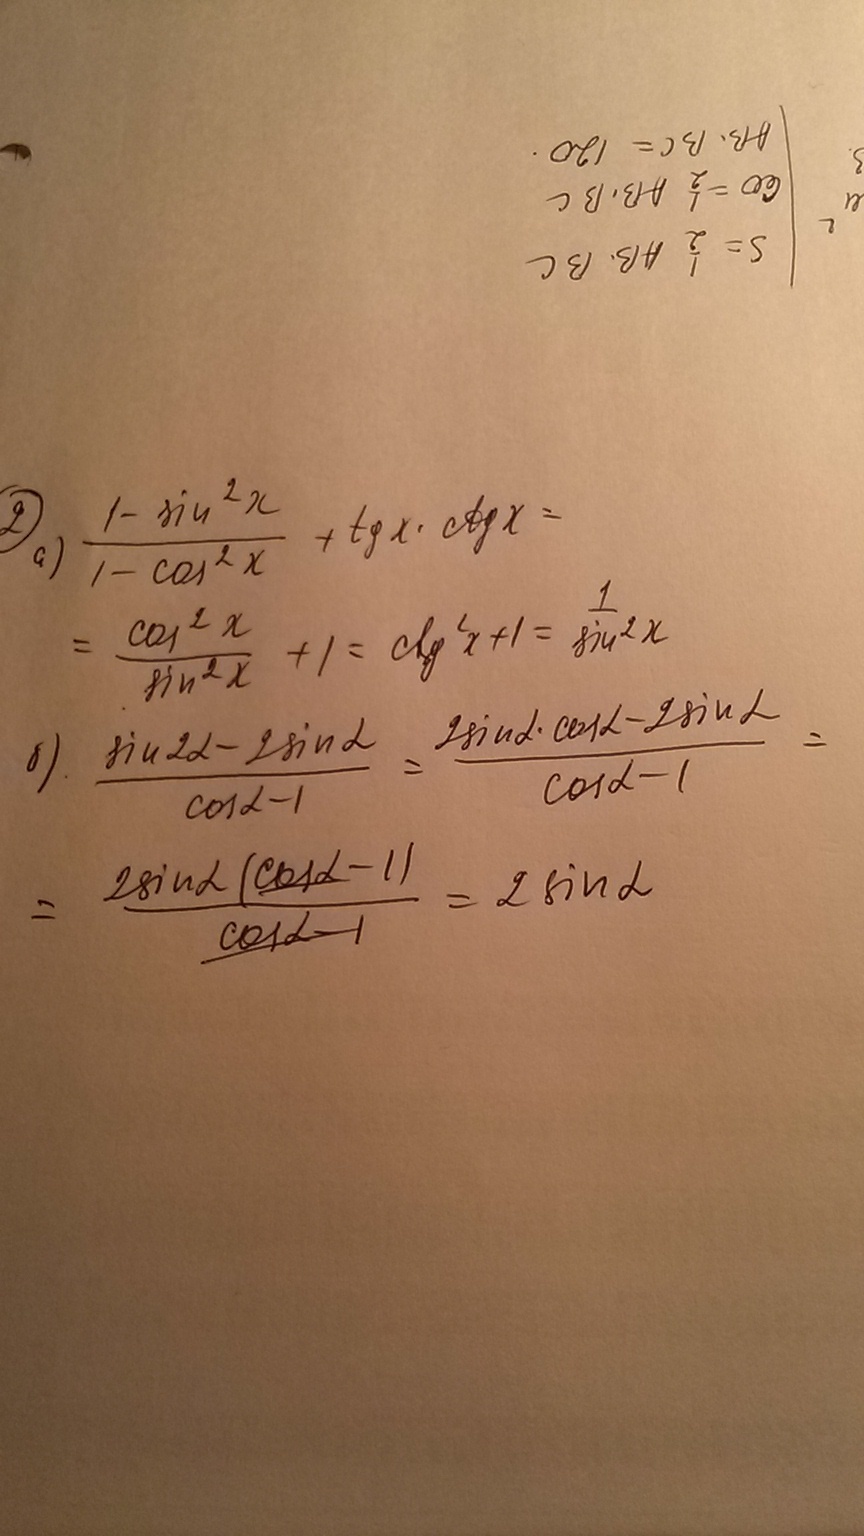 S = 1/2 AB. BC
60 = 1/2 AB. BC
AB. BC = 120.
2
а) (1 - sin²x)/(1 - cos²x) + tg x · ctg x =
= cos²x/sin²x + 1 = ctg²x + 1 = 1/sin²x
б). (sin2α - 2sinα)/(cosα - 1) = (2sinα · cosα - 2sinα)/(cosα - 1) =
= 2sinα (cosα - 1)/(cosα - 1) = 2 sinα